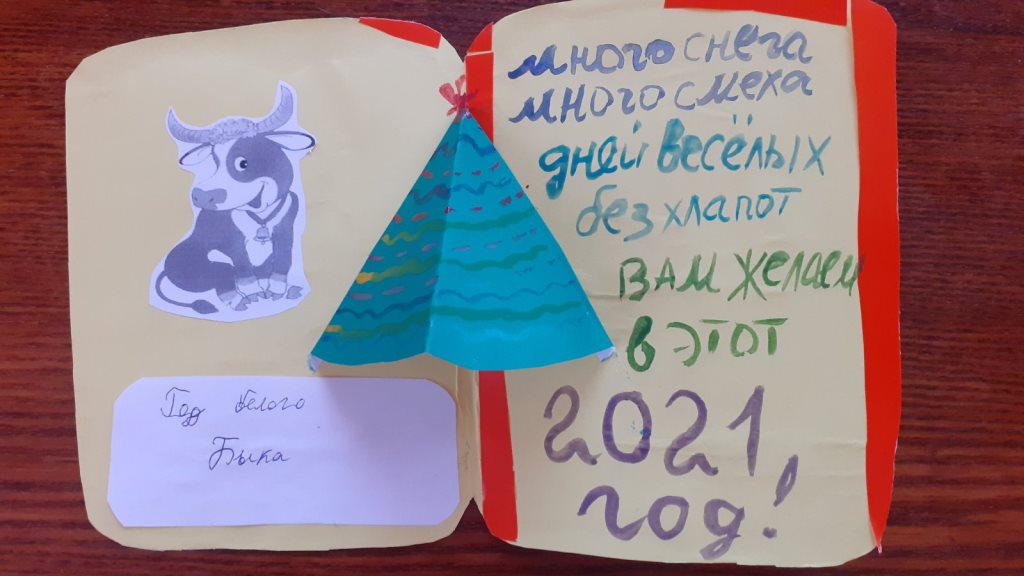 Год белого
Быка
много снега
много смеха
дней весёлых
без хлапот
вам желаем
в этот
2021
год!